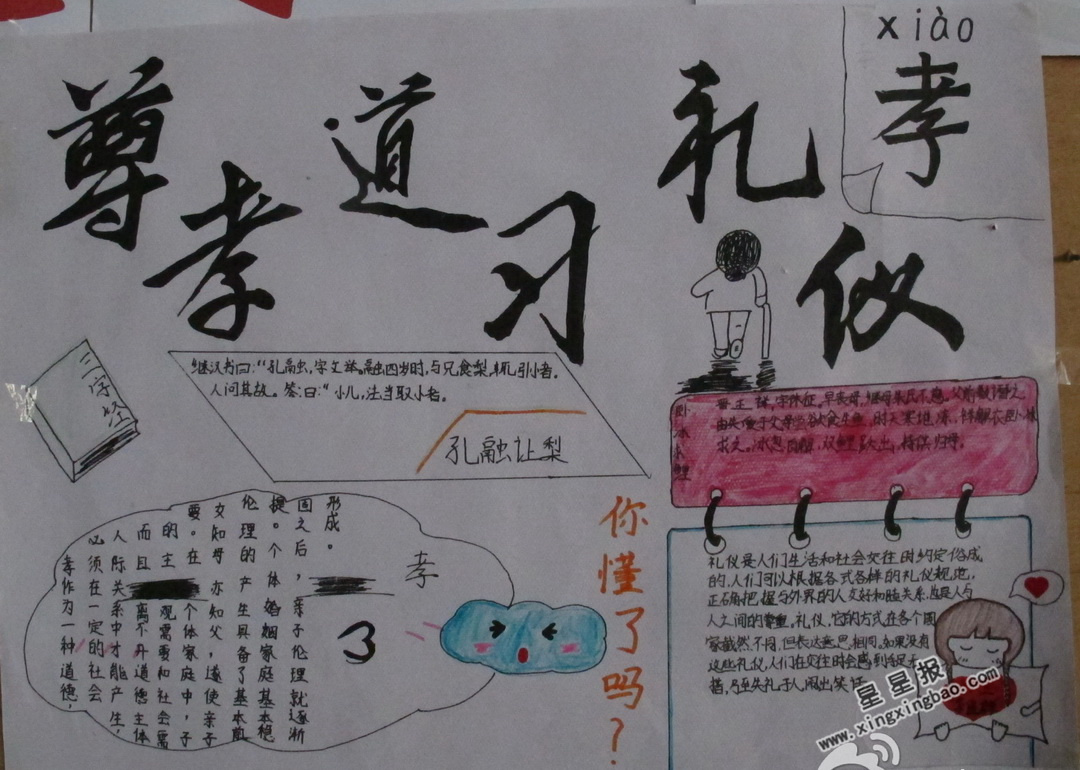 尊孝道习礼仪
xiào
孝
三字经
继汉书曰:“孔融,字文举,融四岁时,与兄食梨,辄引小者。
人问其故。答曰:“小儿,法当取小者。
孔融让梨
晋王祥,字休征,早丧母,继母朱氏不慈。父前数谮之,
求之。冰忽自解,双鲤跃出,持归供母。
孝
孝作为一种道德,
必须在一定的社会
人际关系中才能产生,
而且离不开道德主体
的主观需要和社会需
要。在个体家庭中,子
女知母亦知父,遂使亲子
伦理的产生具备了基本前
提。个体婚姻家庭基本稳
固之后,亲子伦理就逐渐
形成。
3
你懂了吗?
礼仪是人们生活和社会交往时约定俗成
的,人们可以根据各式各样的礼仪规范,
正确把握与外界的人交好和脸关系,应是人与
人之间的尊重。礼仪,它的方式在各个国
家截然不同,但表达意思相同。如果没有
这些礼仪,人们在交往时会感到手足
措,乃至失礼于人,闹出笑话
星星报
www.xingxingbao.com